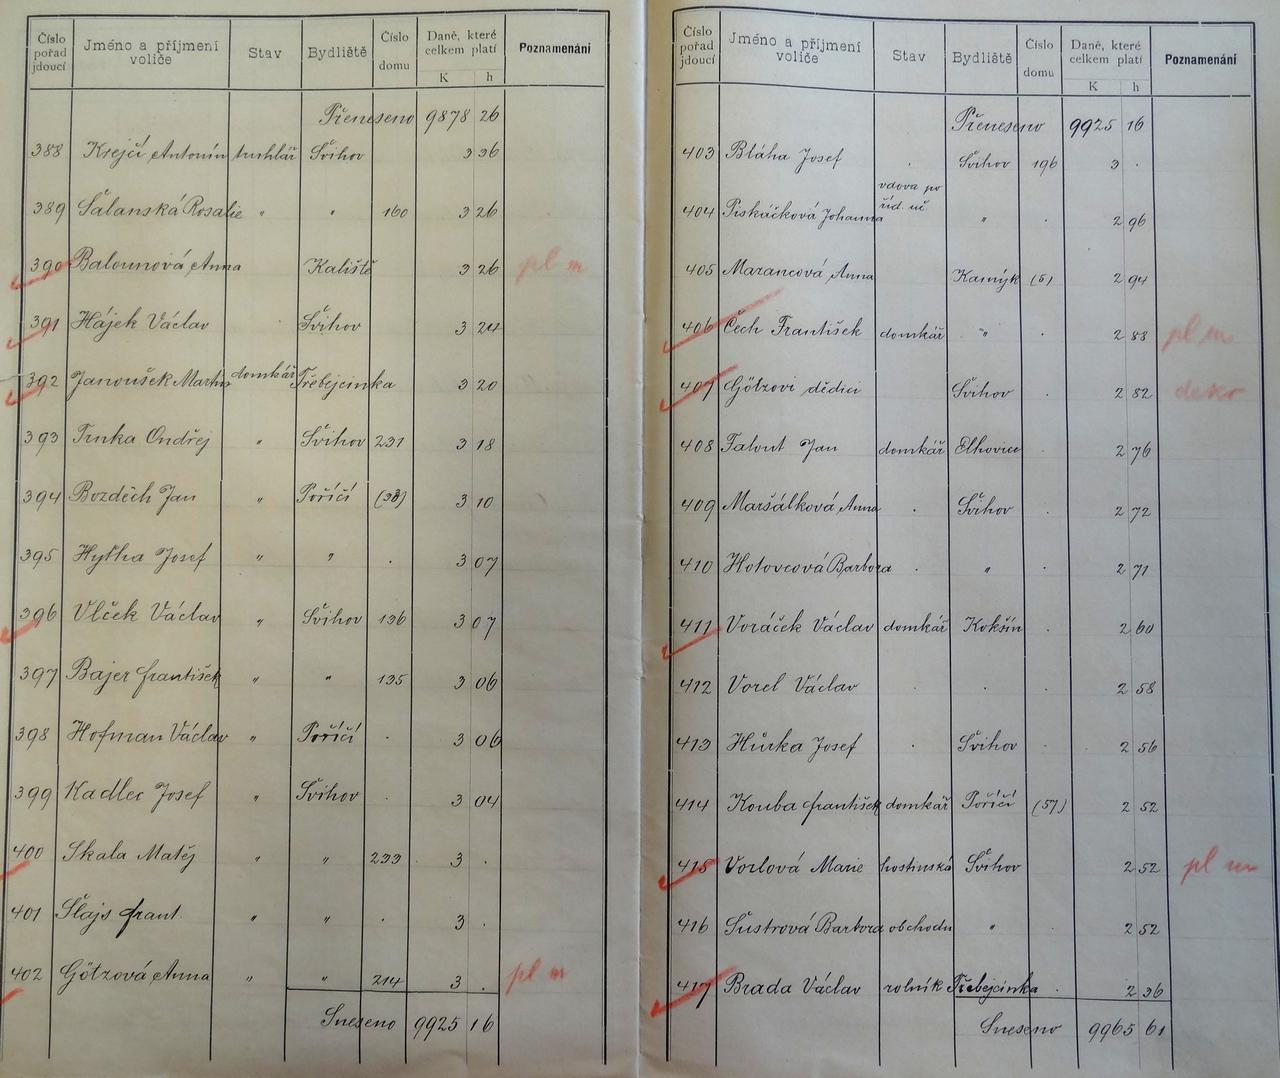 Číslo pořad jdoucí Jméno a příjmení voliče Stav Bydliště Číslo domu Daně, které celkem platí K h Poznamenání
Přeneseno 9878 26
388 Krejčí Antonín truhlář Švihov 3 36
389 Šalanská Rosalie " " 160 3 26
390 Balounová Anna Kaliště 3 26 pl m
391 Hájek Václav Švihov 3 24
392 Janoušek Martin domkář Třebejcinka 3 20
393 Trnka Ondřej " Švihov 231 3 18
394 Bozděch Jan " Poříčí (38) 3 10
395 Hytha Josef " " . 3 07
396 Vlček Václav " Švihov 136 3 07
397 Bajer František " " 135 3 06
398 Hofman Václav " Poříčí . 3 06
399 Kadlec Josef " Švihov . 3 04
400 Skala Matěj " " 233 3 .
401 Šlajs Frant. " " . 3 .
402 Götzová Anna " " 214 3 . pl m
Sneseno 9925 16
Číslo pořad jdoucí Jméno a příjmení voliče Stav Bydliště Číslo domu Daně, které celkem platí K h Poznamenání
Přeneseno 9925 16
403 Bláha Josef . Švihov 196 3 .
404 Piskáčková Johanna vdova po říd. uč. " . 2 96
405 Marancová Anna Kamýk (5) 2 94
406 Čech František domkář " . 2 88 pl m
407 Götzovi dědici Švihov . 2 82
408 Talout Jan domkář Elhovice 2 76
409 Maršálková Anna . Švihov 2 72
410 Hotovcová Barbora . " . 2 71
411 Voráček Václav domkář Kokšín . 2 60
412 Vorel Václav . . . 2 58
413 Hůrka Josef . Švihov . 2 56
414 Kouba František domkář Poříčí (57) 2 52
415 Vorlová Marie hostinská Švihov 2 52 pl m
416 Šustrová Barbora obchodu " 2 52
417 Brada Václav rolník Třebejcinka . 2 36
Sneseno 9965 61